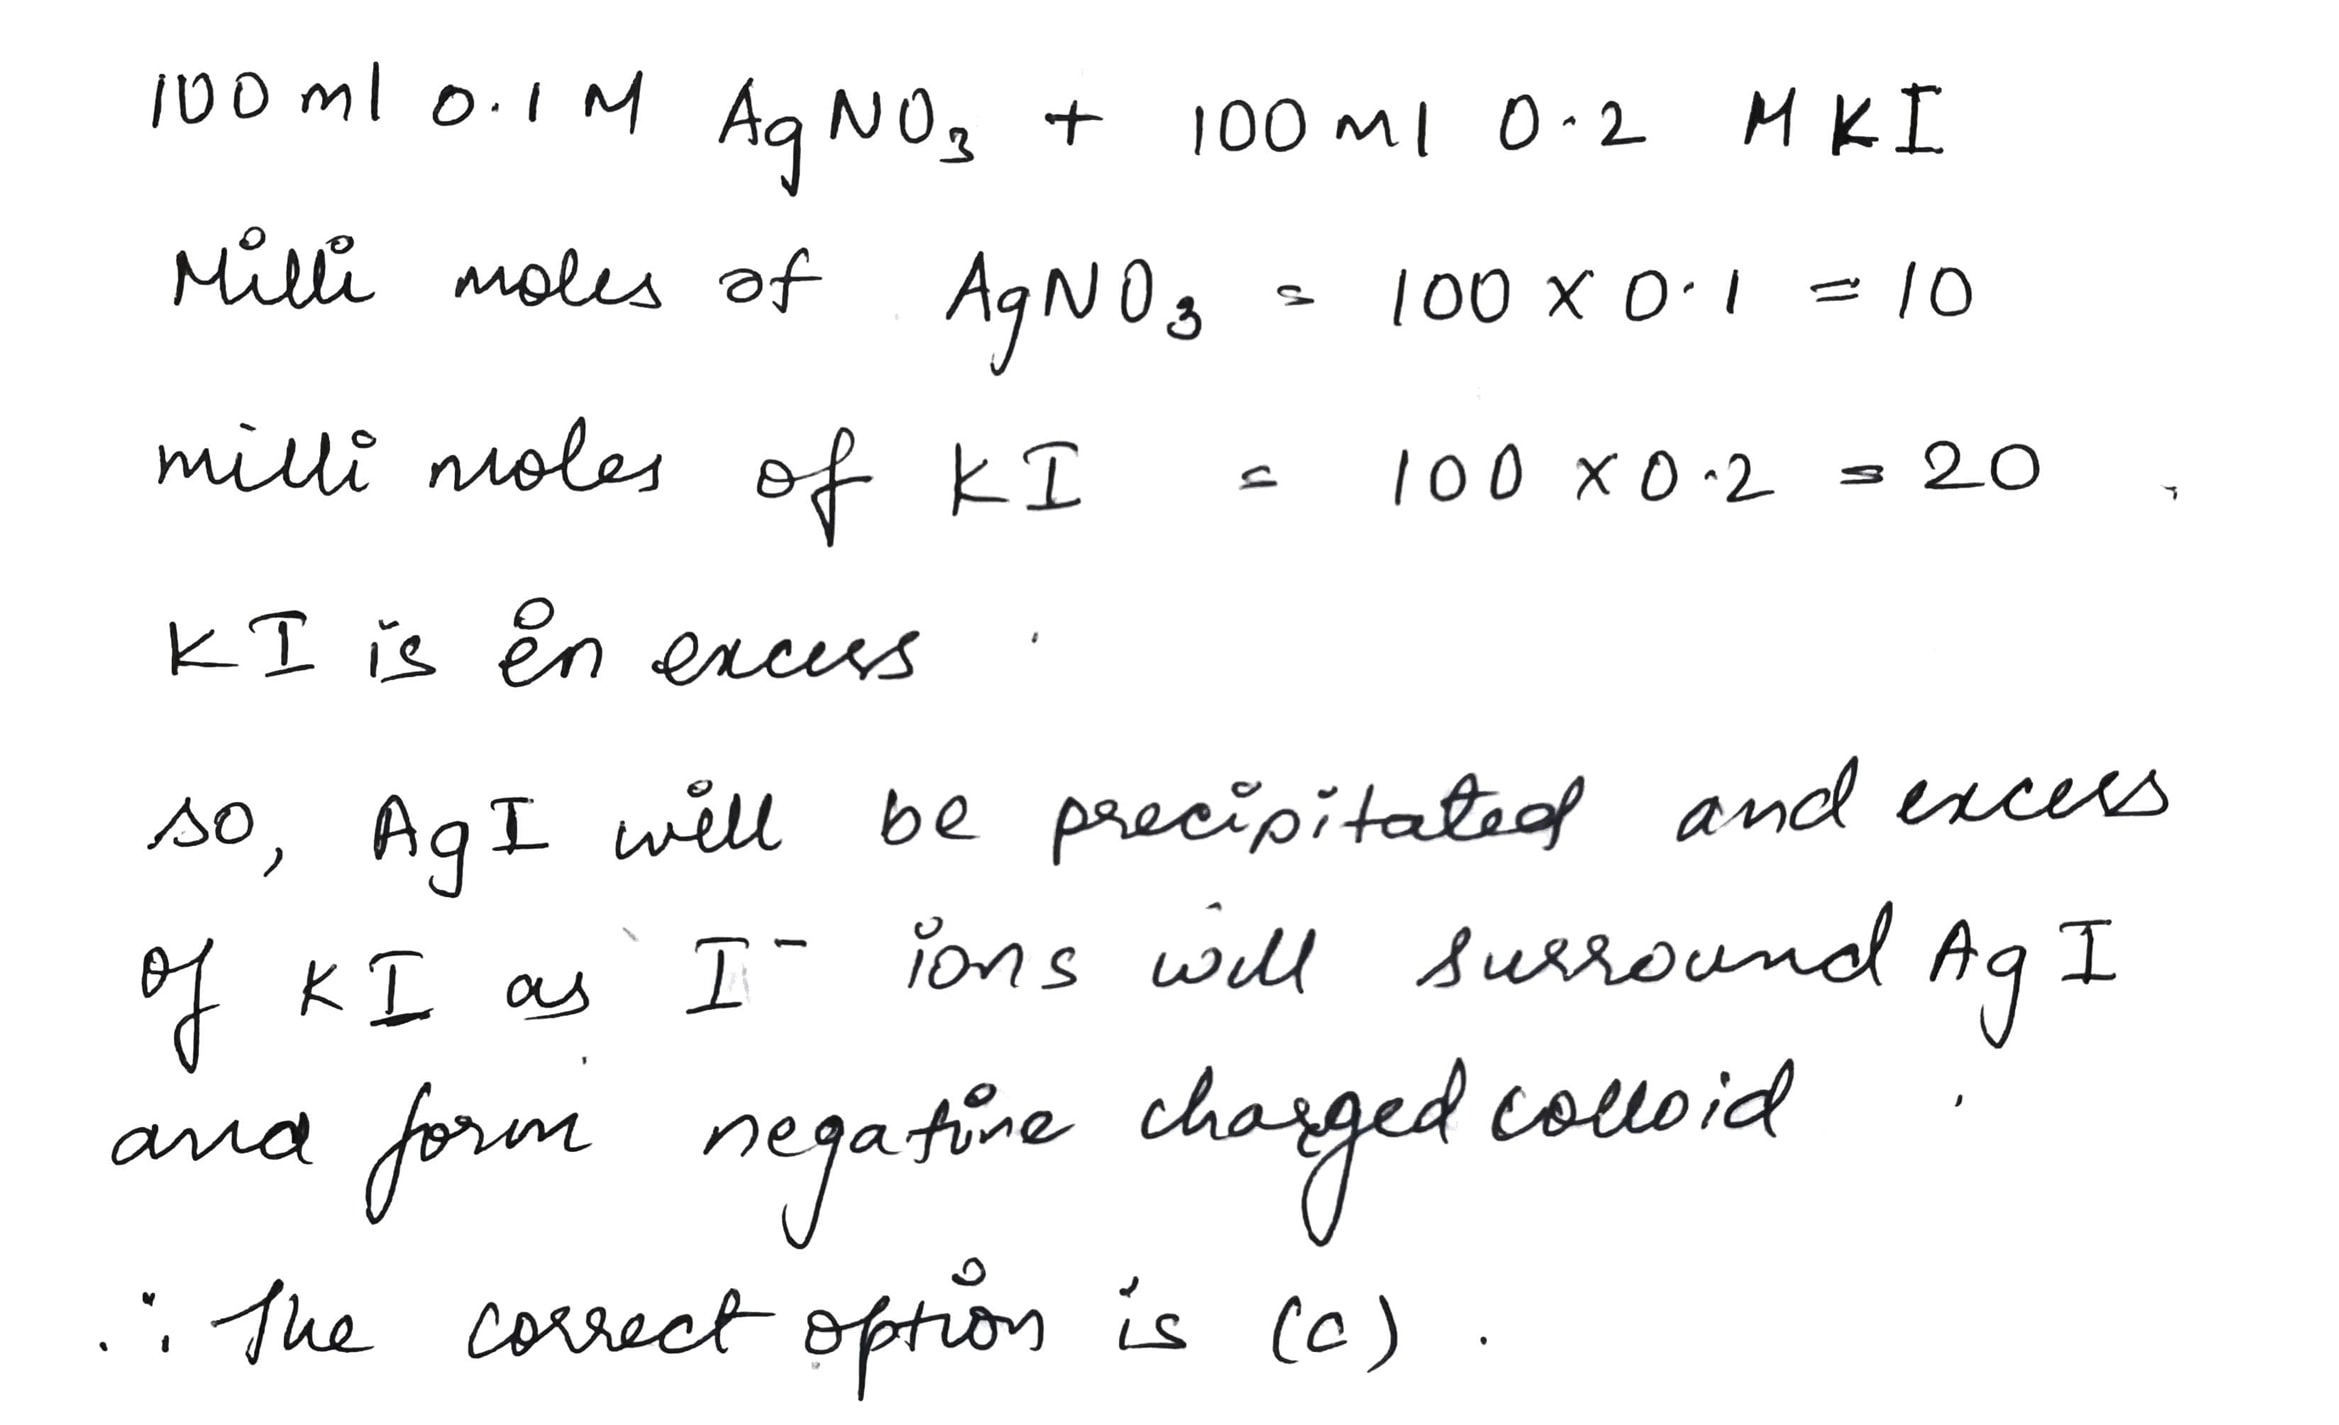 100 ml 0.1 M AgNO3 + 100 ml 0.2 M KI
Milli moles of AgNO3 = 100 x 0.1 = 10
milli moles of KI = 100 x 0.2 = 20
KI is in excess
so, AgI will be precipitated and excess
of KI as I⁻ ions will surround AgI
and form negative charged colloid
∴ The correct option is (c).